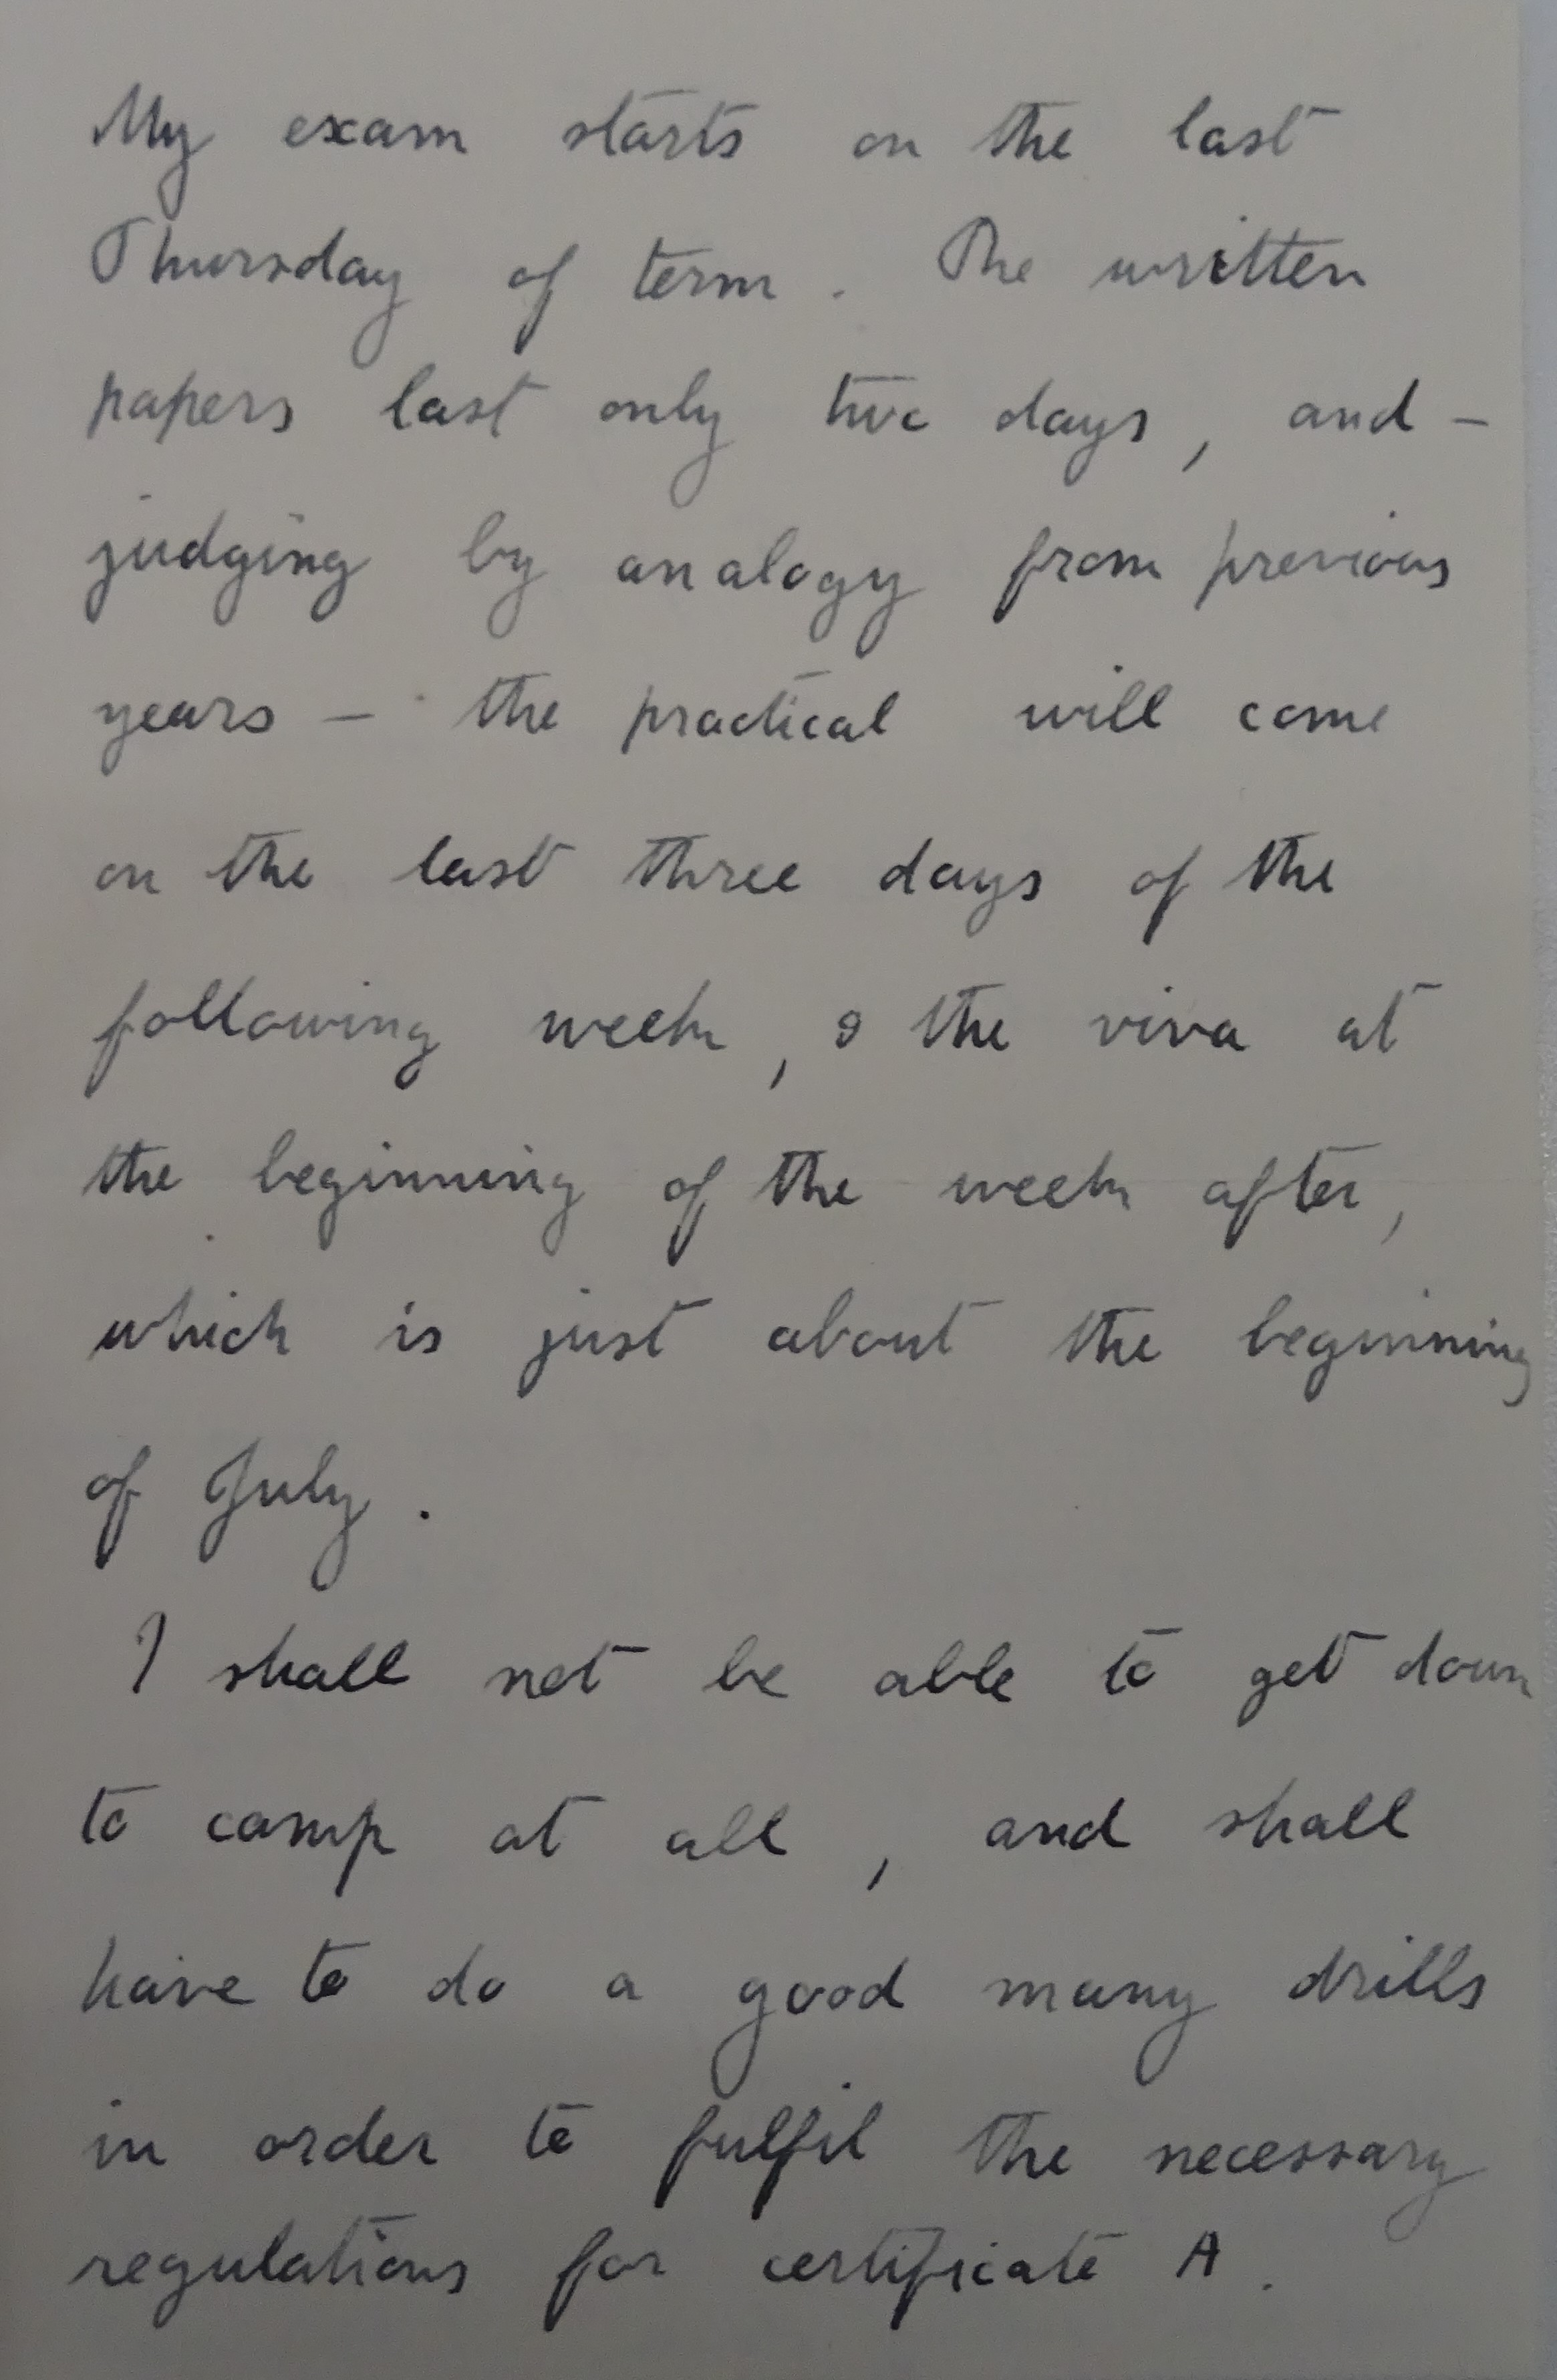 My exam starts on the last
Thursday of term. The written
papers last only two days, and -
judging by analogy from previous
years - the practical will come
on the last three days of the
following week, & the viva at
the beginning of the week after,
which is just about the beginning
of July.
I shall not be able to get down
to camp at all, and shall
have to do a good many drills
in order to fulfil the necessary
regulations for certificate A.